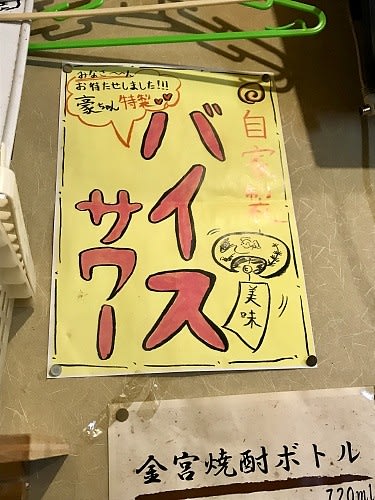 お待たせしました!!!
豪ちゃん特製
自家製
バイス
サワー
美味
金宮焼酎ボトル
720ml